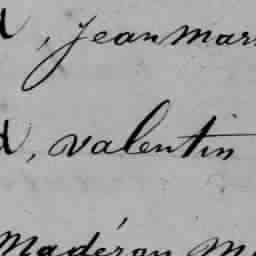 , Jean Mar
, Valentin
Madéron M